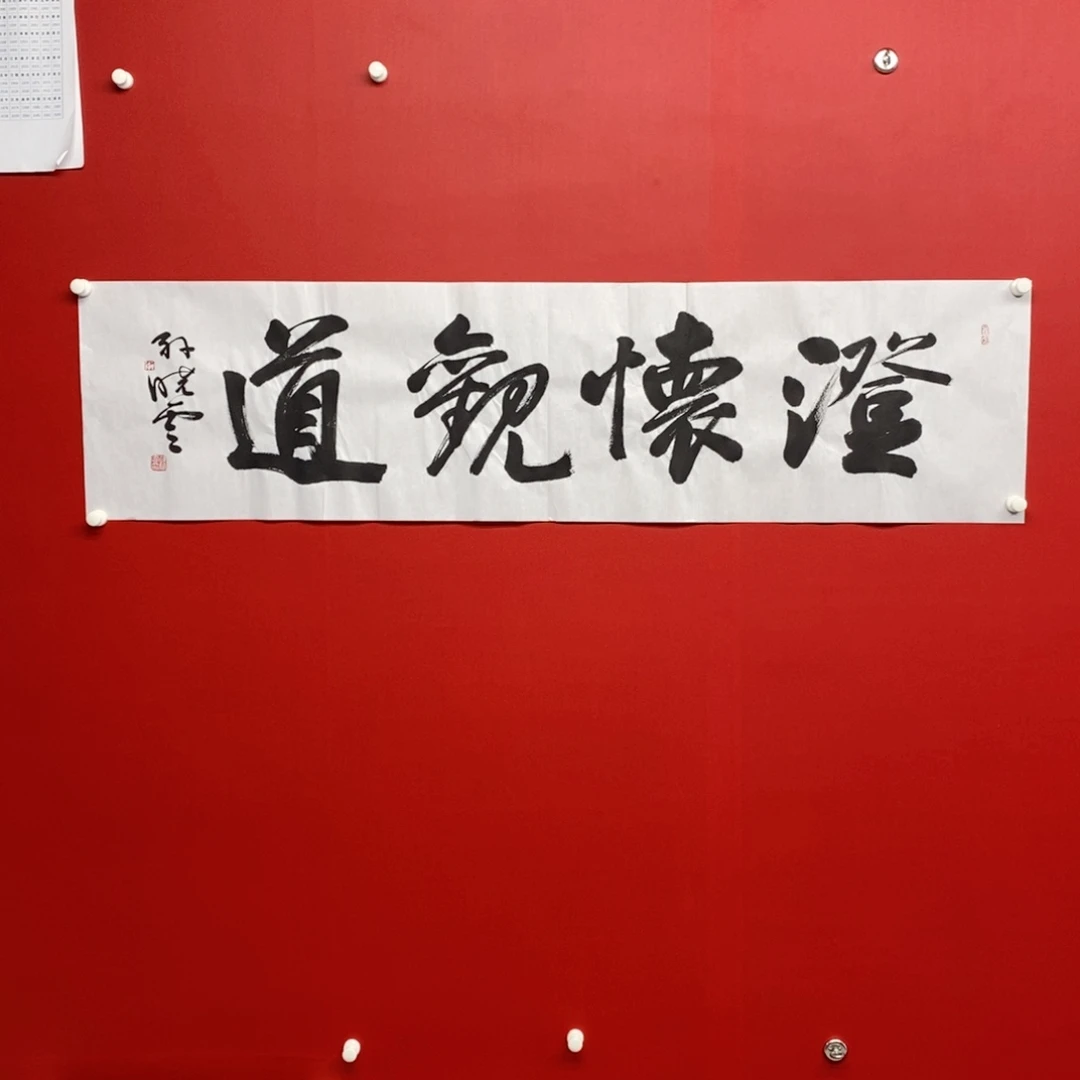 澄懷觀道
孙晓云